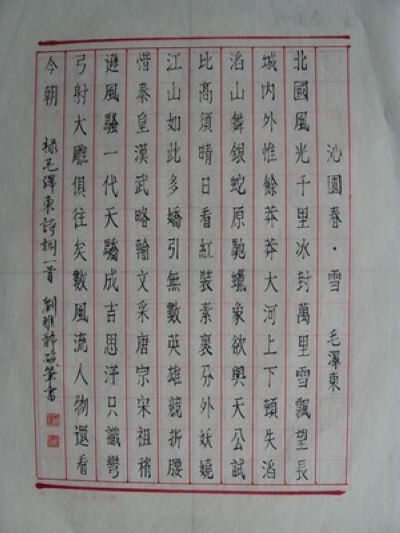 沁園春·雪 毛澤東
北國風光千里冰封萬里雪飄望長
城內外惟餘莽莽大河上下頓失滔
滔山舞銀蛇原馳蠟象欲與天公試
比高須晴日看紅裝素裹分外妖嬈
江山如此多嬌引無數英雄競折腰
惜秦皇漢武略輸文采唐宗宋祖稍
遜風騷一代天驕成吉思汗只識彎
弓射大雕俱往矣數風流人物還看
今朝 錄毛澤東詩詞一首 劉